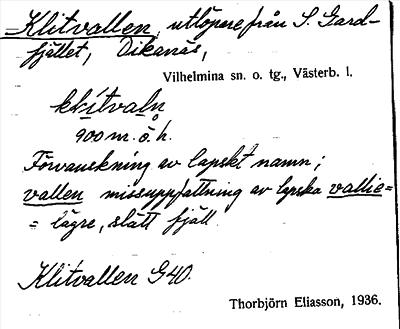 Klitvallen, utlöpare från S. Gard-
fjället, Dikanäs,
Vilhelmina sn. o. tg., Västerb. l.
klitvaln
900 m. ö. h.
Förvanskning av lapskt namn;
vallen missuppfattning av lapska vallie=
= lägre, slätt fjäll.
Klitvallen G40.
Thorbjörn Eliasson, 1936.